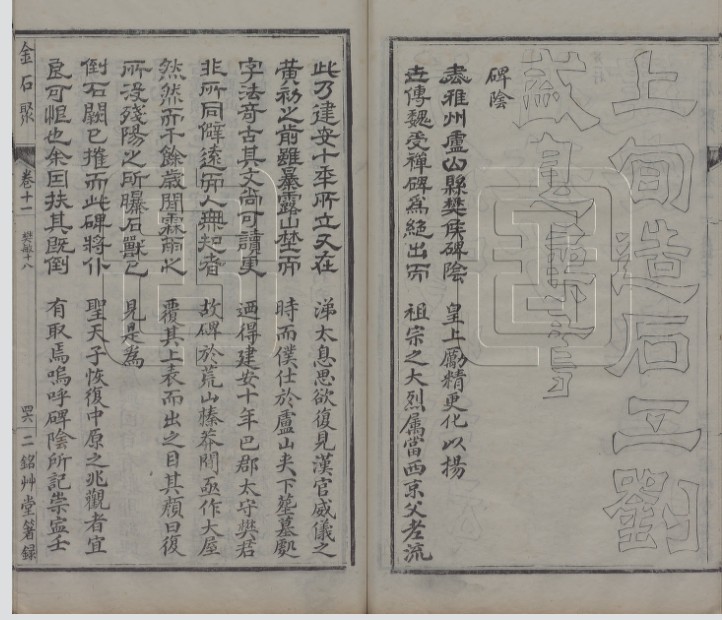 上旬造石工劉
盛
碑陰
雅州盧山縣樊侯碑陰 皇上勵精更化以揚
世傳魏受禪碑為絕出而 祖宗之大烈属當西京父老流
此乃建安十年所立又在 涕太息思欲復見漢官威儀之
黃初之前雖暴露山埜而 時而僕仕於盧山夫下墓處
字法奇古其文尚可讀更 迺得建安十年巴郡太守樊君
非所同僻遠而人無知者 故碑於荒山榛莽間亟作大屋
然然而千餘歲間霖雨之 覆其上表而出之目其顏曰復
所没殘陽之所曝石獸已 見是為
倒石闕已摧而此碑將仆 聖天子恢復中原之兆觀者宜
良可恨也余因扶其既倒 有取焉嗚呼碑陰所記崇寧壬
金石聚 卷十一 樊敏十八 二銘艸堂箸録